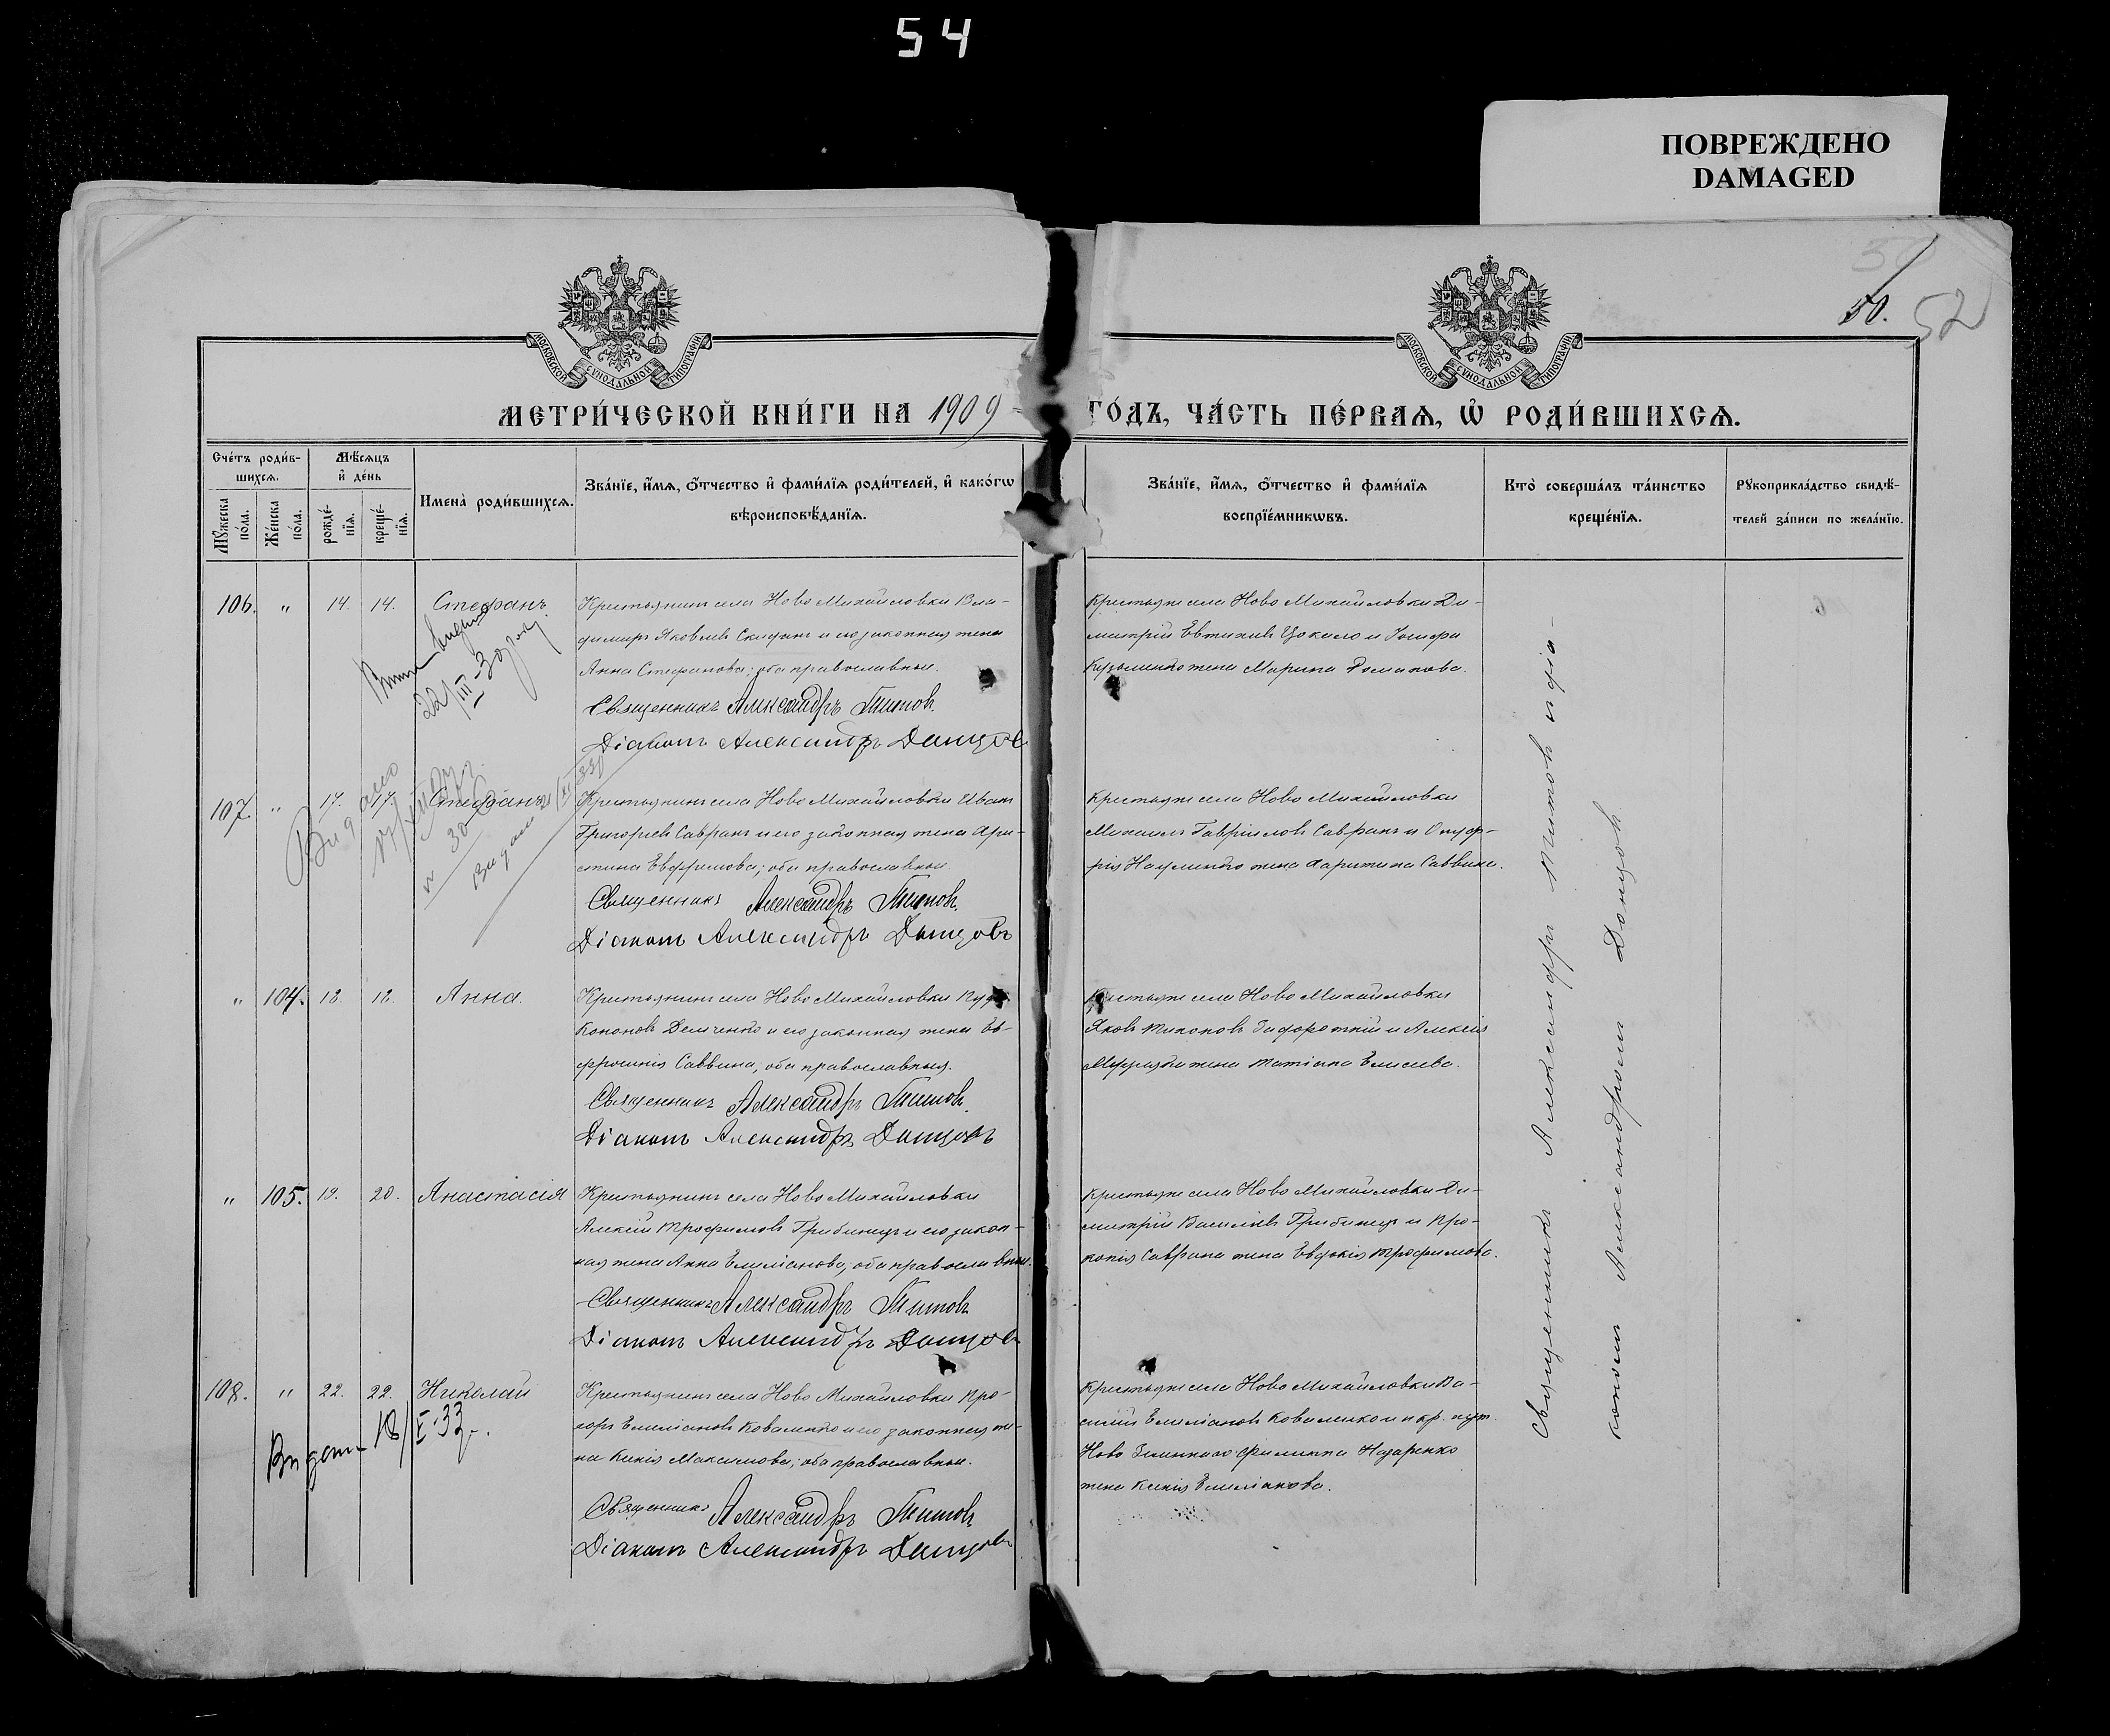 54
ПОВРЕЖДЕНО
DAMAGED
50.
52
МОСКОВСКОЙ СѴНОДАЛЬНОЙ ТИПОГРАФІИ
МОСКОВСКОЙ СѴНОДАЛЬНОЙ ТИПОГРАФІИ
МЕТРИ́ЧЕСКОЙ КНИ́ГИ НА 1909 ГО́ДЪ, ЧА́СТЬ ПЕ́РВАѦ, Ѡ҆ РОДИ́ВШИХСѦ.
Счетъ роди́в-
шихсѧ.
Мꙋжеска по́ла.
Же́нска по́ла.
Мѣ́сѧцъ
и҆ де́нь
рожде́-нїѧ.
креще́-нїѧ.
И҆мена̀ роди́вшихсѧ.
Зва́нїе, и҆́мѧ, ѻ҆́тчество и҆ фами́лїѧ роди́телей, и҆ како́гѡ
вѣроисповѣ́данїѧ.
Зва́нїе, и҆́мѧ, ѻ҆́тчество и҆ фами́лїѧ
воспрїе́мникѡвъ.
Кто̀ соверша́лъ та́инство
креще́нїѧ.
Рꙋкоприкла́дство свидѣ́-
телей за́писи по жела́нїю.
106. " 14. 14. Стефанъ
22/III-30
Крестьянинъ села Ново Михайловки Вла-
димиръ Яковлевъ и его законная жена
Анна Стефанова; оба православные.
Священникъ Александръ Титовъ.
Діаконъ Александръ Донцовъ
Крестьяне села Ново Михайловки Ди-
митрій Евтихіевъ Цокало и Іосифа
Кузьменко жена Марина Романова.
107. " 17. 17. Стефанъ
Видано
Видано
Крестьянинъ села Ново Михайловки Иванъ
Григорьевъ Савранъ и его законная жена Хри-
стина Евфимова; оба православные
Священникъ Александръ Титовъ.
Діаконъ Александръ Донцовъ
Крестьяне села Ново Михайловки
Михаилъ Гавріиловъ Савранъ и Онуф-
рія Науменко жена Харитина Саввина.
" 104. 18. 18. Анна.
Крестьянинъ села Ново Михайловки
Кононовъ Демченко и его законная жена Ев-
фросинія Саввина, оба православныя.
Священникъ Александръ Титовъ.
Діаконъ Александръ Донцовъ
Крестьяне села Ново Михайловки
Яковъ Тихоновъ и Алексія
жена Татіана Елисеева.
" 105. 19. 20. Анастасія
Крестьянинъ села Ново Михайловки
Алексій Трофимовъ Грибинецъ и его закон-
ная жена Анна Емиліанова, оба православные.
Священникъ Александръ Титовъ
Діаконъ Александръ Донцовъ
Крестьяне села Ново Михайловки Ди-
митрій Василіевъ Грибинецъ и Про-
копія Саврана жена Евдокія Трофимова.
108. " 22. 22. Николай
Видано 18/V-33
Крестьянинъ села Ново Михайловки Про-
хоръ Емиліановъ Коваленко и его законная же-
на Ксенія Максимова; оба православные.
Священникъ Александръ Титовъ
Діаконъ Александръ Донцовъ
Крестьяне села Ново Михайловки Ва-
силій Емиліановъ Коваленко и кр.
Ново Филиппа Назаренко
жена Ксенія Емиліанова.
Священникъ Александръ Титовъ и діа-
кономъ Александромъ Донцовъ